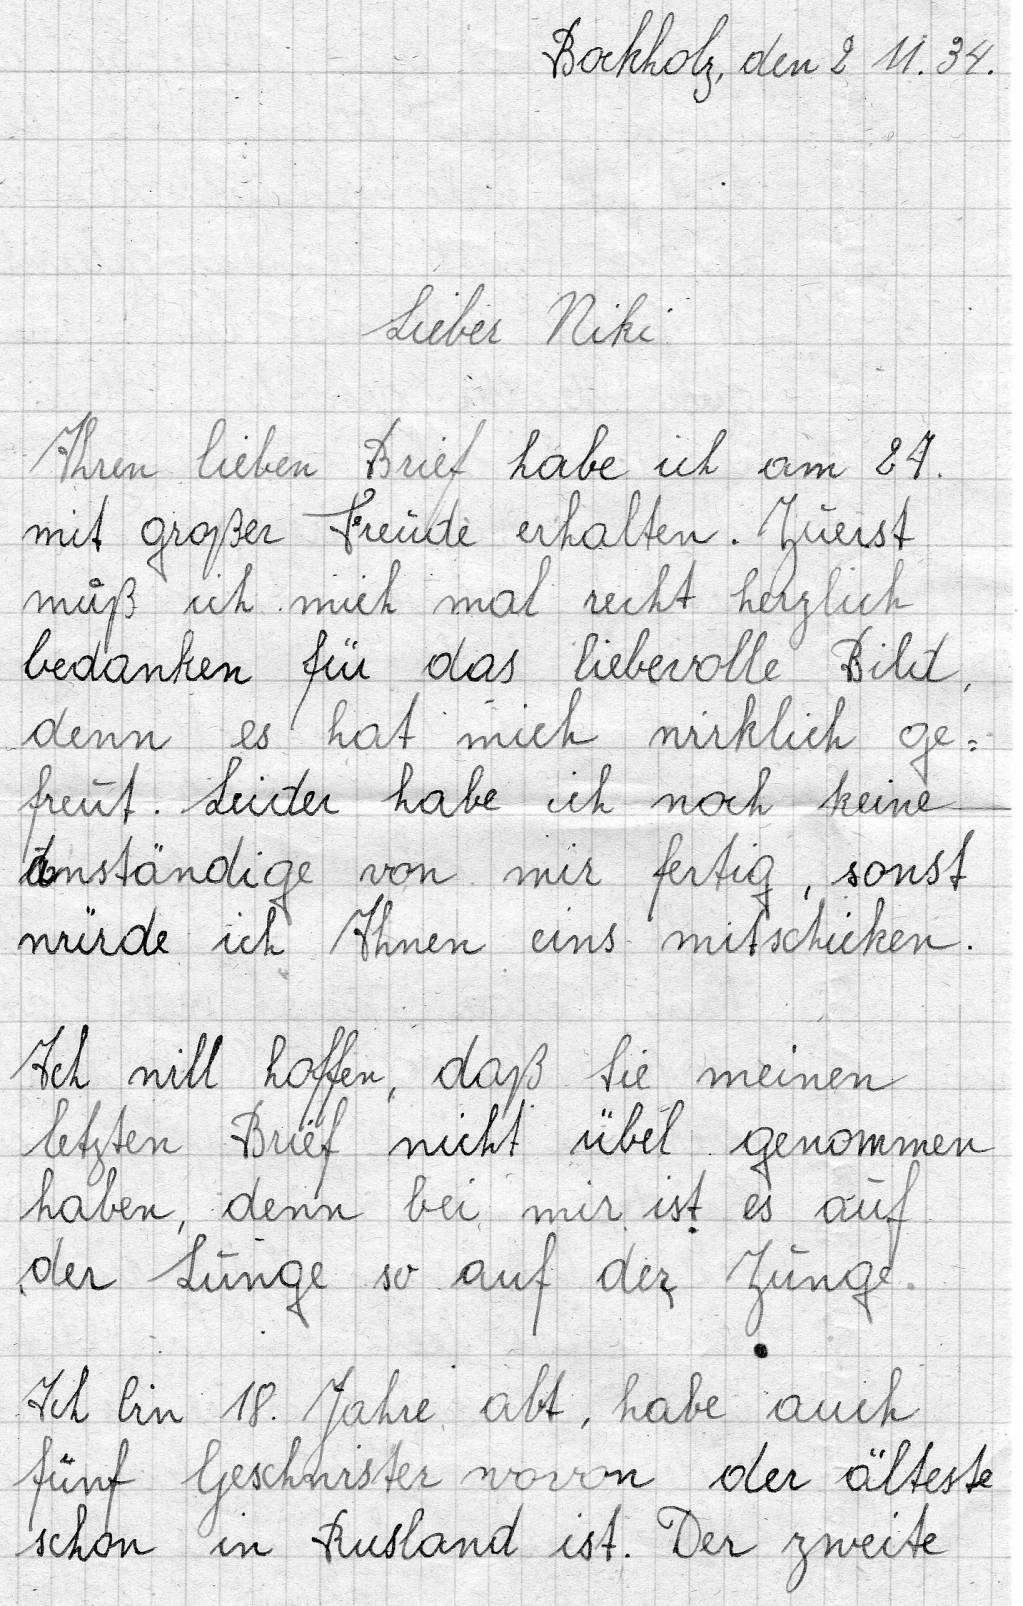 Bockholz, den 2 11. 34.
Lieber Niki
Ihren lieben Brief habe ich am 27.
mit großer Freude erhalten. Zuerst
muß ich mich mal recht herzlich
bedanken für das liebevolle Bild,
denn es hat mich wirklich ge=
freut. Leider habe ich noch keine
anständige von mir fertig, sonst
würde ich Ihnen eins mitschicken.
Ich will hoffen, daß Sie meinen
letzten Brief nicht übel genommen
haben, denn bei mir ist es auf
der Lunge so auf der Zunge.
Ich bin 18. Jahre alt, habe auch
fünf Geschwister wovon der älteste
schon in Rusland ist. Der zweite